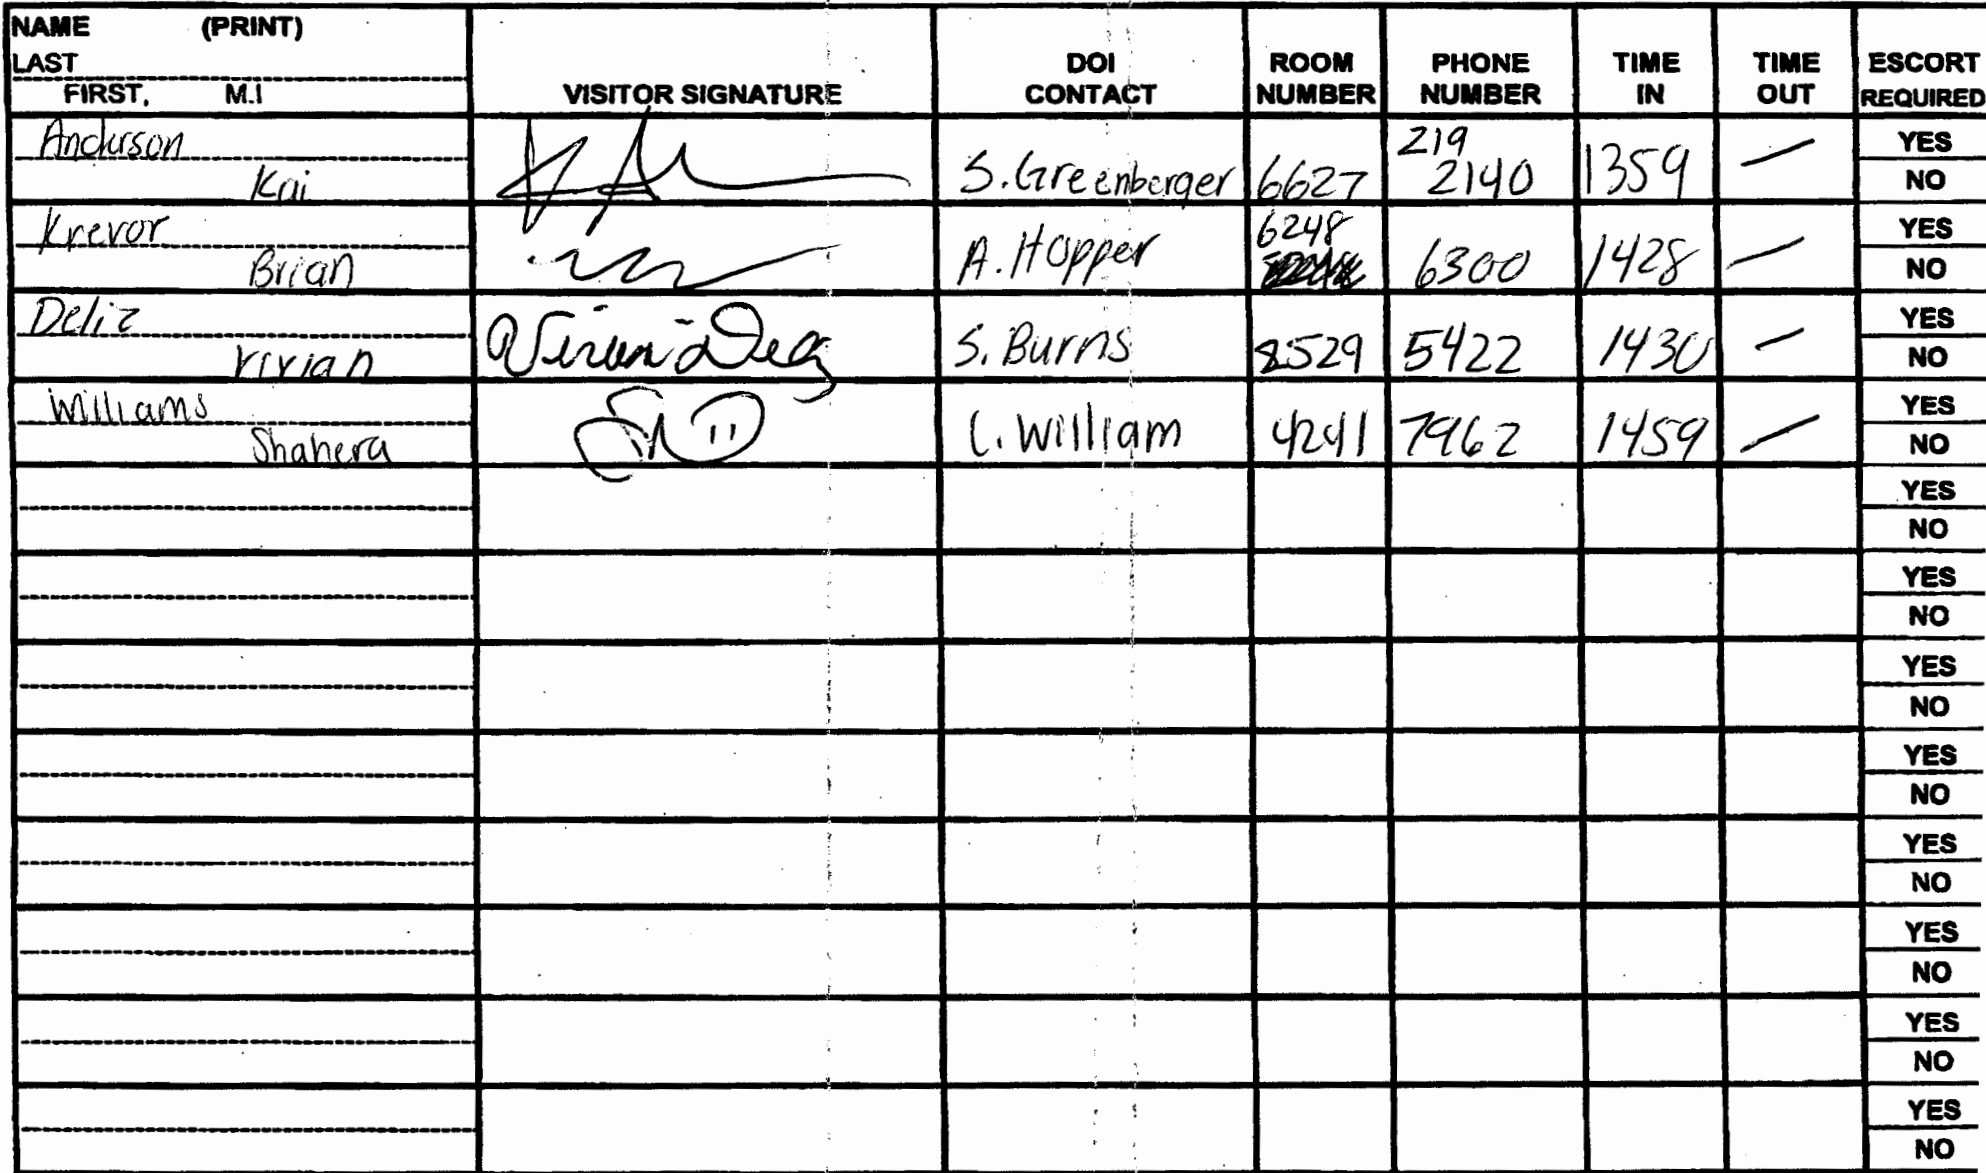 NAME (PRINT)
LAST
FIRST, M.I
VISITOR SIGNATURE
DOI
CONTACT
ROOM
NUMBER
PHONE
NUMBER
TIME
IN
TIME
OUT
ESCORT
REQUIRED
Anderson
Kai
S. Greenberger
6627
219
2140
1359
—
YES
NO
Krevor
Brian
A. Hopper
6248
6300
1428
—
YES
NO
Deliz
Vivian
S. Burns
8529
5422
1430
—
YES
NO
Williams
Shahera
C. William
4241
7962
1459
—
YES
NO
YES
NO
YES
NO
YES
NO
YES
NO
YES
NO
YES
NO
YES
NO
YES
NO